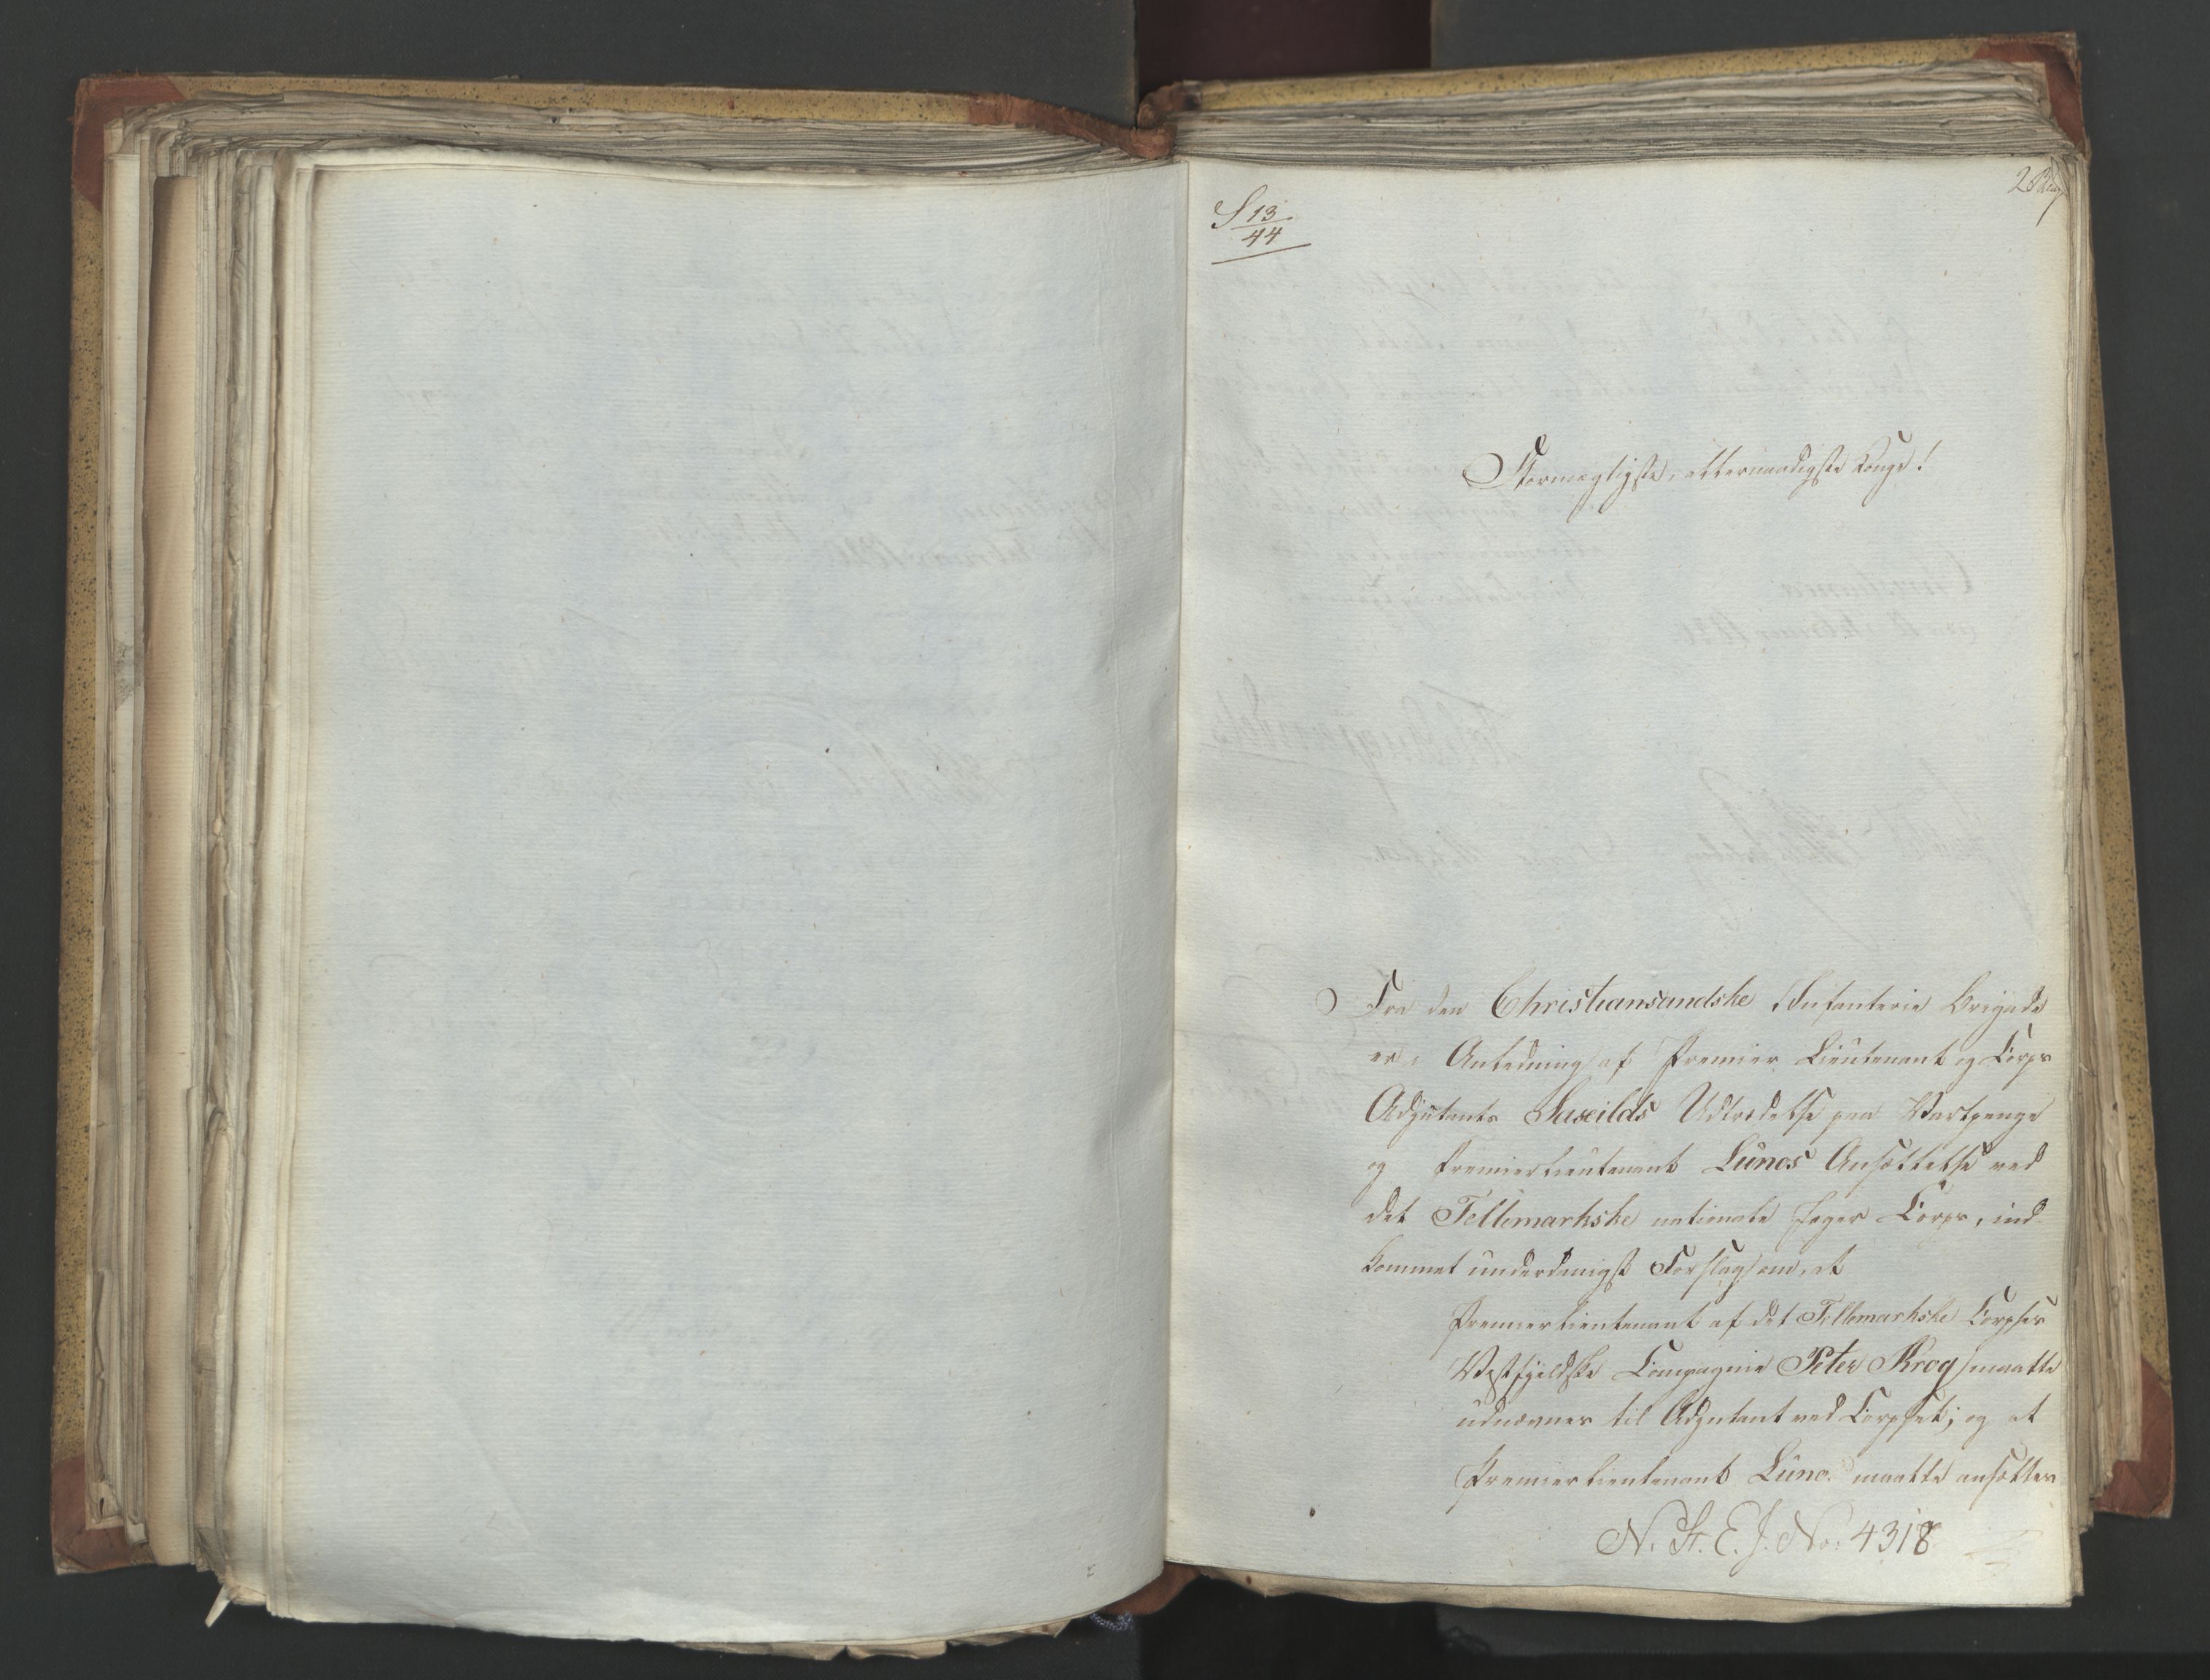 S 13
44
Stormægtigste, allernaadigste Konge!
Fra den Christiansandske Infanterie Brigade
er, i Anledning af Premier Lieutenant og Corps
Adjutants Laseilds Udtrædelse paa Vartpenge
og Premierlieutenant Lunos Ansættelse ved
det Tellemarkske nationale Jæger Corps, ind-
kommet underdanigst Forslag om, at
Premierlieutenant af det Tillemarkske Corpses
Vestfjeldske Compagnie Peter Krog maatte
udnævnes til Adjutant ved Corpset; og at
Premierlieutenant Luno maatte ansættes
N. St. E. J. No. 4318